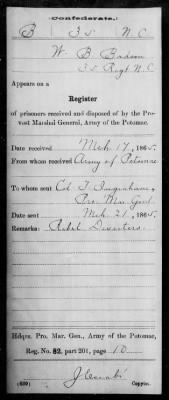 Confederate.
B | 35 | N C
W. B. Badson
35 Regt N C
Appears on a
Register
of prisoners received and disposed of by the Pro-
vost Marshal General, Army of the Potomac.
Date received Mch 17, 1865.
From whom received Army of Potomac
To whom sent Col T. Ingraham,
Pro. Mar. Genl.
Date sent Mch 21, 1865.
Remarks: Rebel Deserters.
Hdqrs. Pro. Mar. Gen., Army of the Potomac,
Reg. No. 82, part 201, page 10
(639)
Copyist.